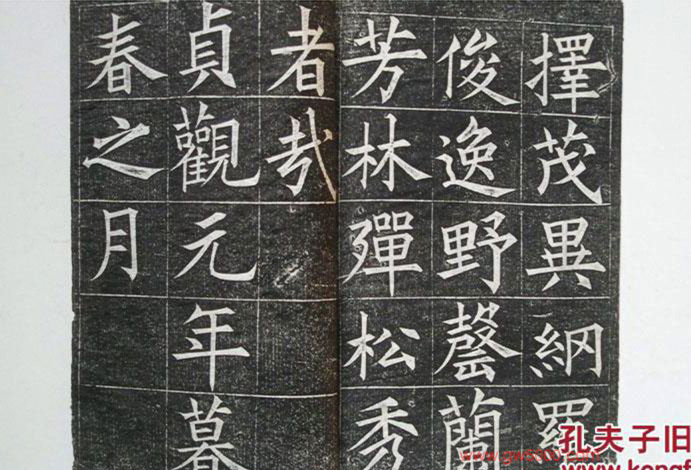 擇茂異網羅
俊逸野罄蘭
芳林殫松秀
者哉
貞觀元年暮
春之月
孔夫子旧